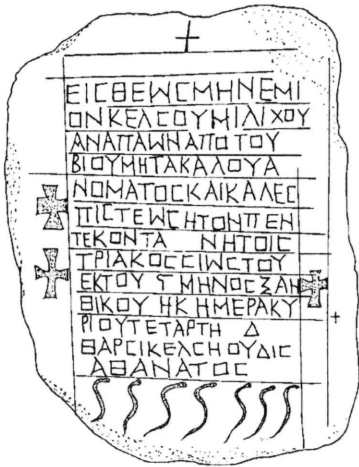 ΕΙСΘΕWСΜΗΝΕΜΙ
ΟΝΚΕΛСΟΥΜΙΛΙΧΟΥ
ΑΝΑΠΑWΝΑΠΟΤΟΥ
ΒΙΟΥΜΗΤΑΚΑΛΟΥΑ
ΝΟΜΑΤΟСΚΑΙΚΑΛΕС
ΠΙСΤΕWСΗΤΟΝΠΕΝ
ΤΕΚΟΝΤΑ ΝΗΤΟΙС
ΤΡΙΑΚΟССΙWСΤΟΥ
ΕΚΤΟΥ ΜΗΝΟСΞΑΗ
ΘΙΚΟΥΗΚΗΜΕΡΑΚΥ
ΡΙΟΥΤΕΤΑΡΤΗ Δ
ΘΑΡСΙΚΕΛСΗΟΥΔΙС
ΑΘΑΝΑΤΟС